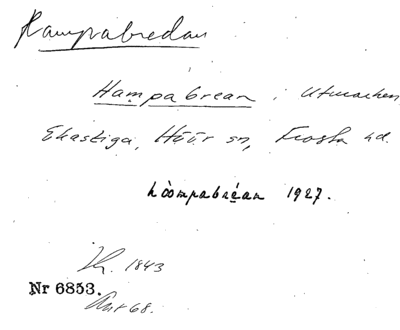 Hampabredan
Hampabrean i Utmarken
Ekastiga, Höör sn, Frosta hd.
hòompabréan 1927.
1843
Nr 6853.
Ant 68.